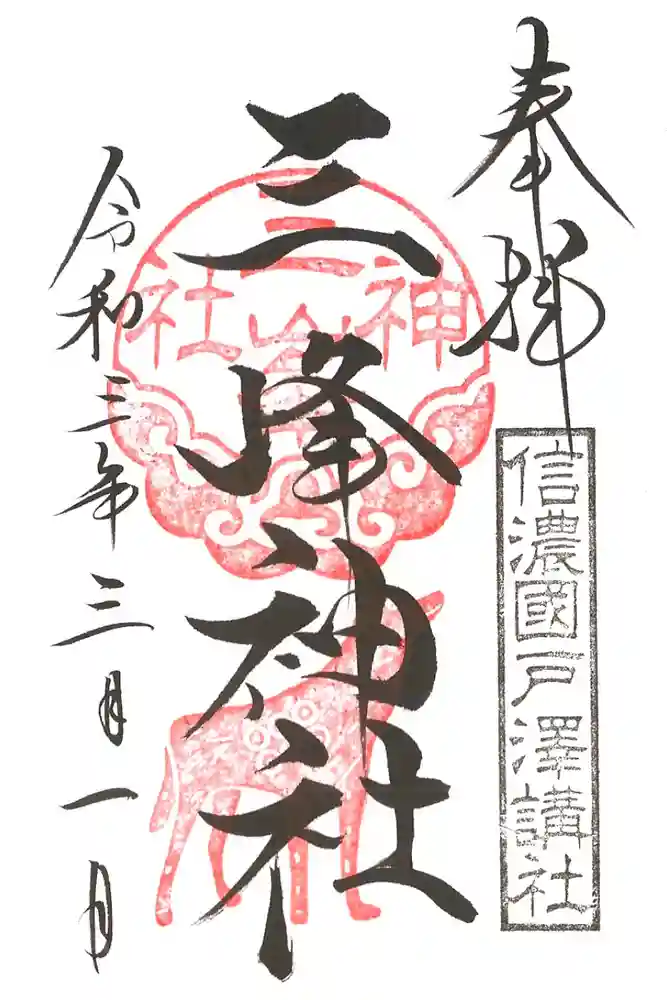 奉拝
信濃國戸澤講社
三峰神社
令和三年三月一日
三峯神社